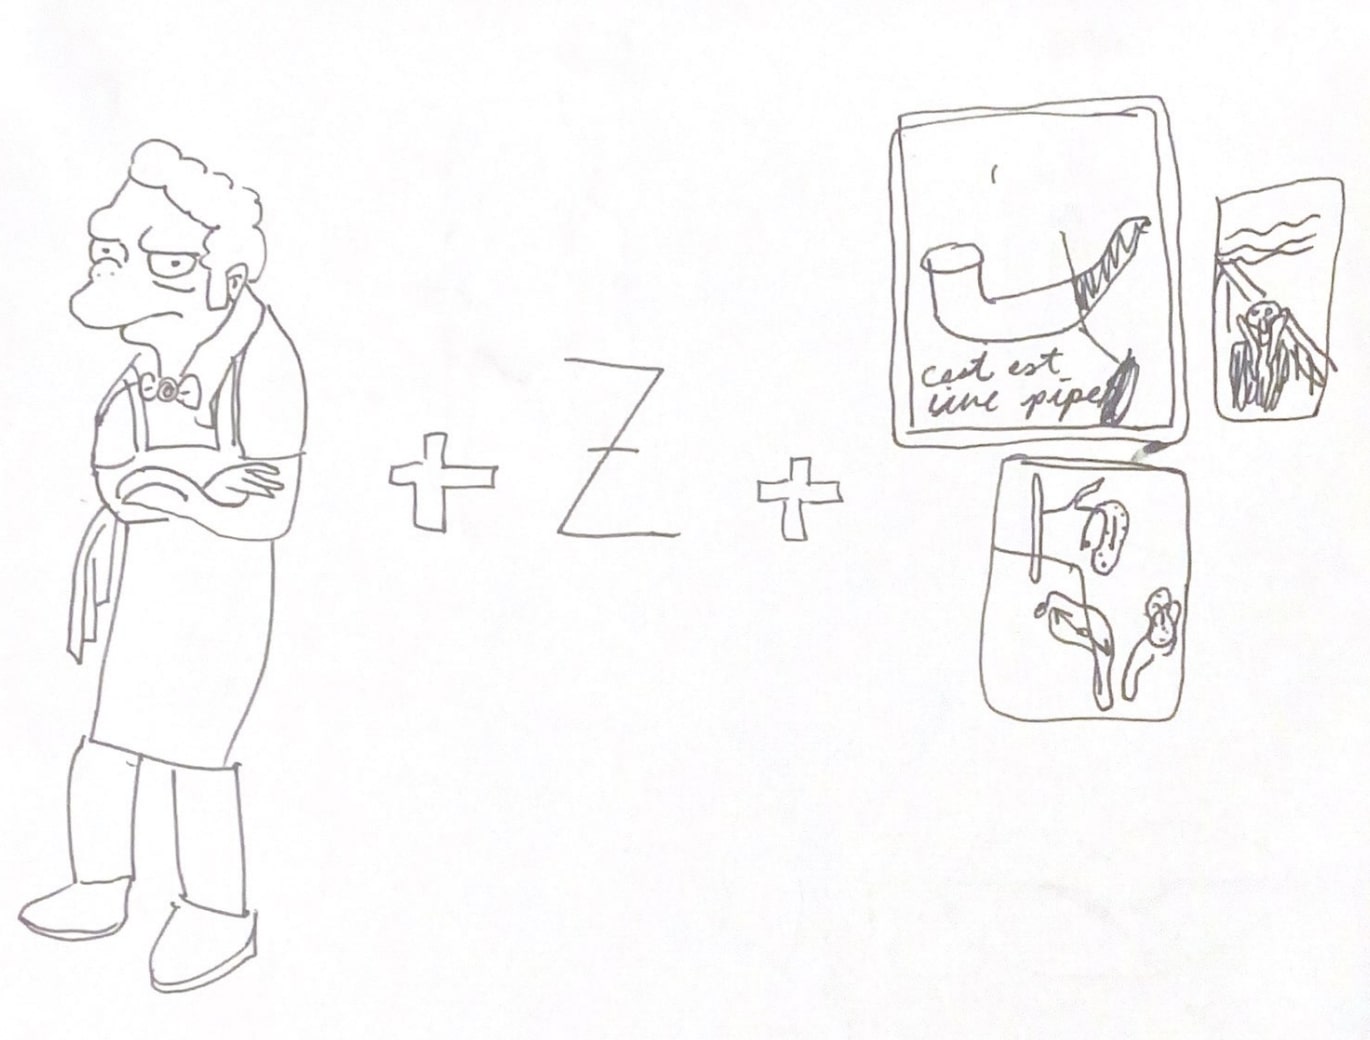 Z
cest est
une pipe